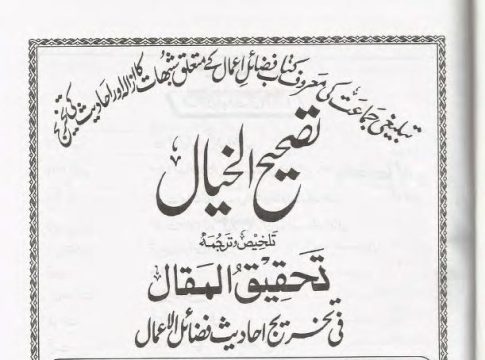 تبلیغی جماعت کی معروف کتاب فضائل اعمال کے متعلق شبہات کا ازالہ اور احادیث کی تخریج
تصحیح الخیال
تلخیص و ترجمہ
تحقیق المقال
فی تخریج احادیث فضائل الاعمال